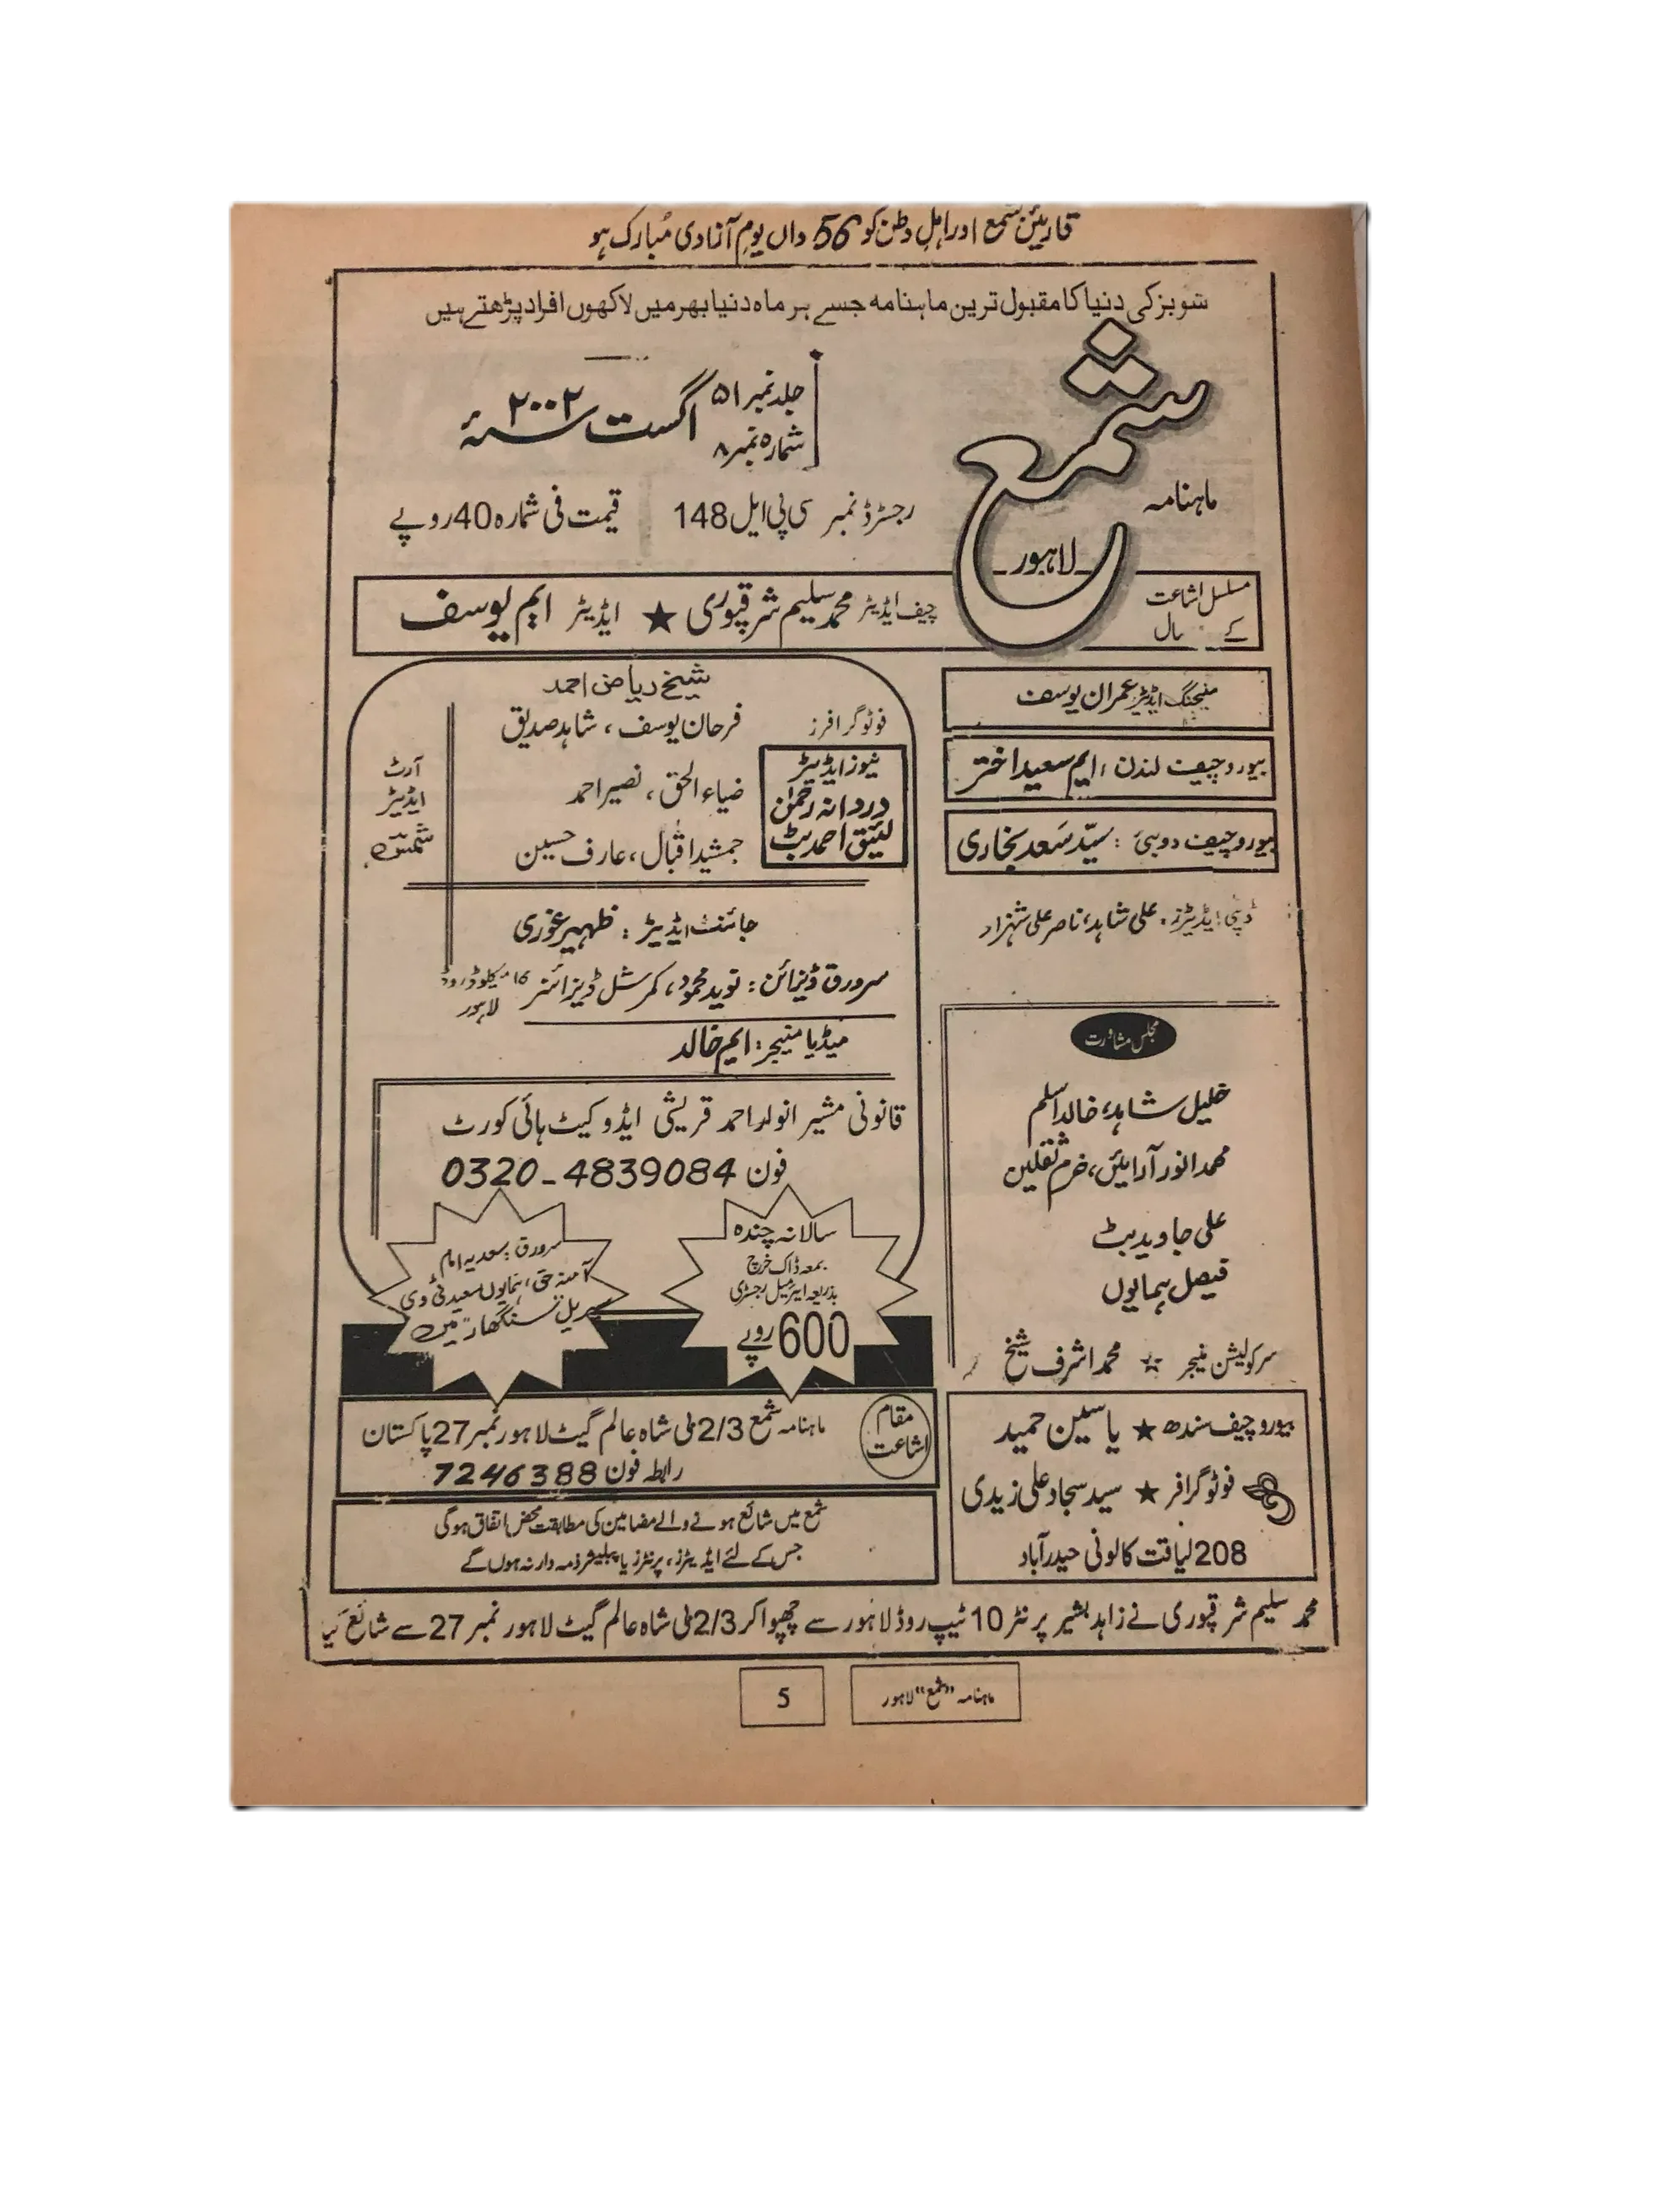 قارئین شمع اور اہل وطن کو 56 واں یوم آزادی مبارک ہو
شوبز کی دنیا کا مقبول ترین ماہنامہ جسے ہر ماہ دنیا بھر میں لاکھوں افراد پڑھتے ہیں
ماہنامہ
شمع
لاہور
جلد نمبر ۵۱
شمارہ نمبر ۸
اگست ۲۰۰۲ء
رجسٹرڈ نمبر سی پی ایل 148
قیمت فی شمارہ 40 روپے
مسلسل اشاعت
کے سال
چیف ایڈیٹر محمد سلیم شرقپوری ★ ایڈیٹر ایم یوسف
منیجنگ ایڈیٹر عمران یوسف
بیورو چیف لندن : ایم سعید اختر
بیورو چیف دوبئی : سیّد سَعد بخاری
ڈپٹی ایڈیٹرز : علی شاہد، ناصر علی شہزاد
مجلس مشاورت
خلیل شاہد، خالد اسلم
محمد انور آرائیں، خرم ثقلین
علی جاوید بٹ
فیصل ہمایوں
سرکولیشن منیجر ☆ محمد اشرف شیخ
بیورو چیف سندھ ★ یاسین حمید
فوٹوگرافر ★ سید سجاد علی زیدی
208 لیاقت کالونی حیدرآباد
شیخ ریاض احمد
فوٹو گرافرز
فرحان یوسف، شاہد صدیق
ضیاء الحق، نصیر احمد
جمشید اقبال، عارف حسین
نیوز ایڈیٹر
دردانہ رحمٰن
لئیق احمد بٹ
آرٹ
ایڈیٹر
شمسی
جائنٹ ایڈیٹر : ظہیر غوری
سرورق ڈیزائن : نوید محمود، کمرشل ڈیزائنر ۱۶ میکلوڈ روڈ
لاہور
میڈیا منیجر : ایم خالد
قانونی مشیر انوار احمد قریشی ایڈووکیٹ ہائی کورٹ
فون 4839084-0320
سالانہ چندہ
بمعہ ڈاک خرچ
بذریعہ ایئرمیل رجسٹری
600 روپے
سرورق : سعدیہ امام
آمنہ حق، ہمایوں سعید ٹی وی
سیریل "سنگھار" میں
مقام
اشاعت
ماہنامہ شمع 2/3 ٹی شاہ عالم گیٹ لاہور نمبر 27 پاکستان
رابطہ فون 7246388
شمع میں شائع ہونے والے مضامین کی مطابقت محض اتفاق ہوگی
جس کے لئے ایڈیٹرز، پرنٹرز یا پبلیشر ذمہ دار نہ ہوں گے
محمد سلیم شرقپوری نے زاہد بشیر پرنٹر 10 ٹیپ روڈ لاہور سے چھپوا کر 2/3 ٹی شاہ عالم گیٹ لاہور نمبر 27 سے شائع کیا
ماہنامہ "شمع" لاہور
5